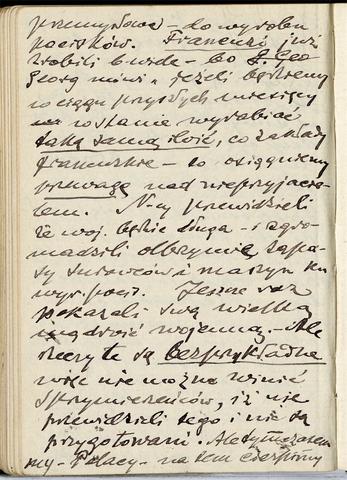 przemysłowe – do wyrobu
pocisków. Francuzi już
zrobili b. wiele – bo L. Geo
Georg mówi – jeżeli będziemy
w ciągu przyszłych miesięcy
w stanie wyrabiać
taką samą ilość, co zakłady
francuskie – to osiągniemy
przewagę nad nieprzyjacie-
lem. N-cy przewidzieli
że woj. będzie długa – i zgro-
madzili olbrzymie zapa-
sy surowców i maszyn ku
wyr. poci. Jeszcze raz
pokazali swą wielką
mądrość wojenną. – Ale
rzeczy te są bezprzykładne
więc nie można winić
Sprzymierzeńców, iż nie
przewidzieli tego i nie są
przygotowani. Ale tymczasem
my – Polacy – na tem cierpimy